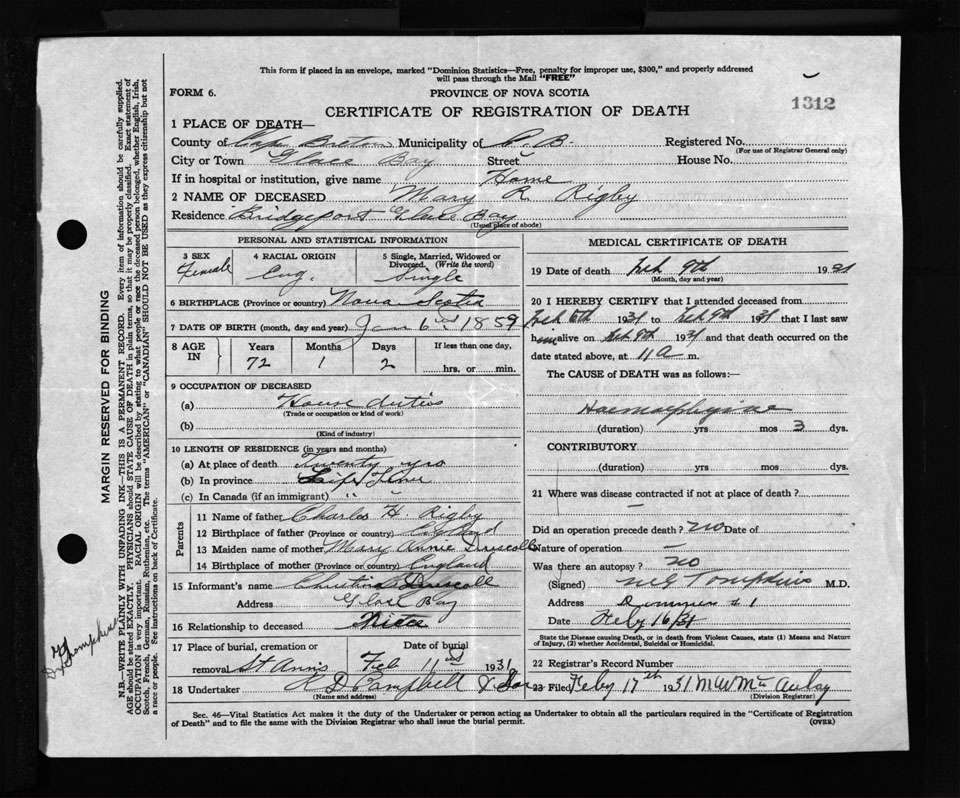 This form if placed in an envelope, marked "Dominion Statistics—Free, penalty for improper use, $300," and properly addressed
will pass through the Mail "FREE"
FORM 6.
PROVINCE OF NOVA SCOTIA
1312
CERTIFICATE OF REGISTRATION OF DEATH
1 PLACE OF DEATH—
County of Cape Breton Municipality of C. B. Registered No.
(For use of Registrar General only)
City or Town Glace Bay Street House No.
If in hospital or institution, give name Home
2 NAME OF DECEASED Mary R. Rigby
Residence Bridgeport Glace Bay
(Usual place of abode)
PERSONAL AND STATISTICAL INFORMATION
3 SEX 4 RACIAL ORIGIN 5 Single, Married, Widowed or
Divorced. (Write the word)
Female Eng. Single
6 BIRTHPLACE (Province or country) Nova Scotia
7 DATE OF BIRTH (month, day and year) Jan 6 1859
8 AGE IN Years Months Days If less than one day,
72 1 2 hrs. or min.
9 OCCUPATION OF DECEASED
(a) House duties
(Trade or occupation or kind of work)
(b)
(Kind of industry)
10 LENGTH OF RESIDENCE (in years and months)
(a) At place of death Twenty yrs
(b) In province Life Time
(c) In Canada (if an immigrant) " "
Parents
11 Name of father Charles H. Rigby
12 Birthplace of father (Province or country)
13 Maiden name of mother Mary Annie Driscoll
14 Birthplace of mother (Province or country) England
15 Informant's name Christina Driscoll
Address Glace Bay
16 Relationship to deceased Niece
17 Place of burial, cremation or Date of burial
removal St Anns Feb 11 1931
18 Undertaker H D Campbell & Son
(Name and address)
MEDICAL CERTIFICATE OF DEATH
19 Date of death Feb 9th 1931
(Month, day and year)
20 I HEREBY CERTIFY that I attended deceased from
Feb 6th 1931 to Feb 9th 1931 that I last saw
him alive on Feb 9th 1931 and that death occurred on the
date stated above, at 11 a m.
The CAUSE of DEATH was as follows:—
(duration) yrs mos 3 dys.
CONTRIBUTORY
(duration) yrs. mos. dys.
21 Where was disease contracted if not at place of death?
—
Did an operation precede death? no Date of
Nature of operation —
Was there an autopsy? no
(Signed) M G Tompkins M.D.
Address Dominion #1
Date Feby 16/31
State the Disease causing Death, or in death from Violent Causes, state (1) Means and Nature
of Injury, (2) whether Accidental, Suicidal or Homicidal.
22 Registrar's Record Number
23 Filed Feby 17th 1931 M W McAulay
(Division Registrar)
Sec. 46—Vital Statistics Act makes it the duty of the Undertaker or person acting as Undertaker to obtain all the particulars required in the "Certificate of Registration
of Death" and to file the same with the Division Registrar who shall issue the burial permit. (OVER)
MARGIN RESERVED FOR BINDING
N.B.—WRITE PLAINLY WITH UNFADING INK—THIS IS A PERMANENT RECORD. Every item of information should be carefully supplied.
AGE should be stated EXACTLY. PHYSICIANS should STATE CAUSE OF DEATH in plain terms, so that it may be properly classified. Exact statement of
OCCUPATION is very important. RACIAL ORIGIN will be described by stating to what people or race the deceased person belonged, whether English, Irish,
Scotch, French, German, Russian, Ruthenian, etc. The terms "AMERICAN" or "CANADIAN" SHOULD NOT BE USED as they express citizenship but not
a race or people. See instructions on back of Certificate.
Tompkins